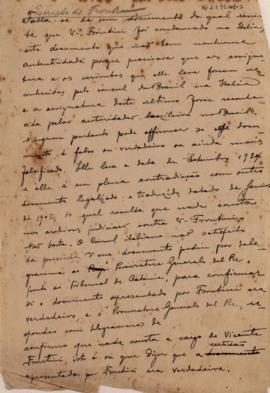 Falla se de um documento do qual
te que V. Frontini foi condemnado na Italia,
este documento não tem nenhuma
autenticidade porque precisava que as assigna
tura e os carimbos que elle leva fossem re
conhecidos pelo consul do Brasil na Italia
e a assignatura deste ultimo fosse reconhe
cida pelas autoridades brasileiras no Brasil
ninguem portanto pode affirmar se o docu
mento é falso ou verdadeiro ou ainda mais
falsificado. Elle leva a data de Setembro 1924
e elle é em plena contradicção com outro
documento legalizado e traduzido datado de
de 1925, do qual resulta que nada consta
nos archivos judiciaes contra V. Frontini.
O Consul Italiano não satisfeito
um documento pediu por tele
gramma ao Procuratore Generale del Re,
junto ao Tribunal de Catania, para confirmar
si o documento apresentado por Frontini era
verdadeiro, e o Procuratore Generale del Re, re
spondeu com telegramma de
confirmo que nada consta a cargo de Vicente
Frontini, isto é ou quer dizer que a certidão
apresentada por Frontini era verdadeira.